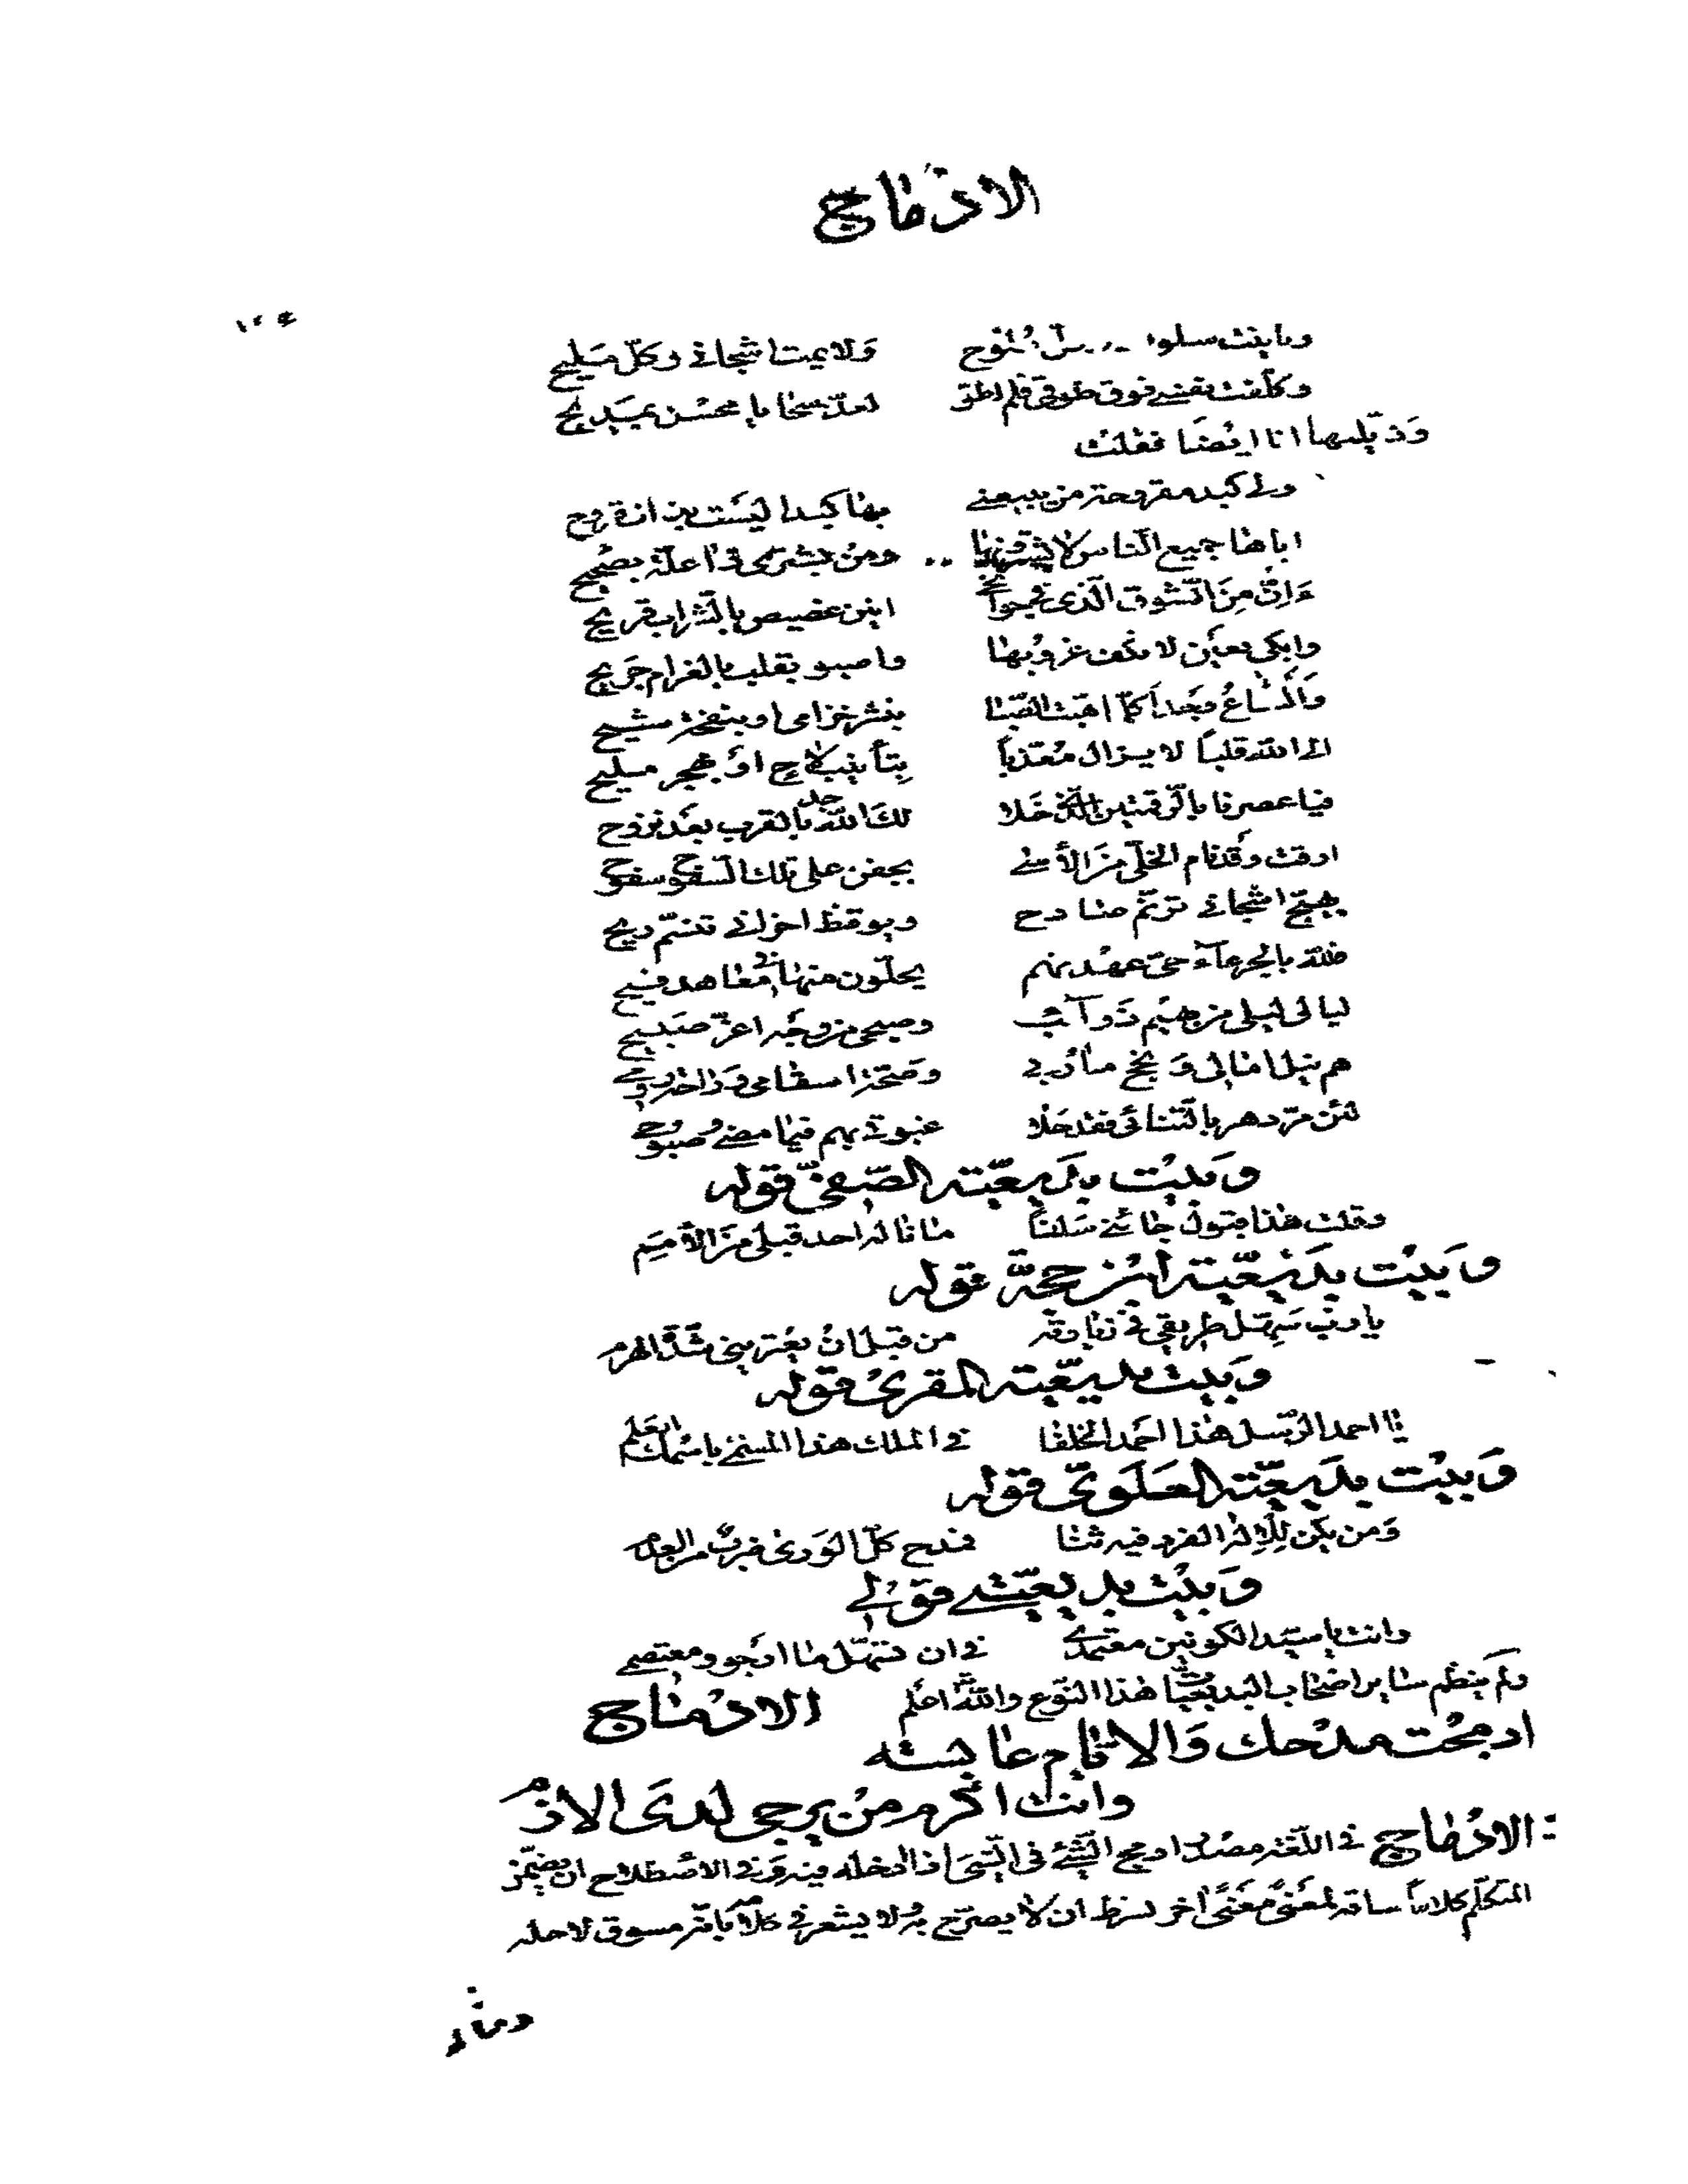 الادماج
وبانت سلو نزوح ولا يمت اشجاني وكل مليح
وكلفت نفسي فوق طوقي فلم اطق لعد سخايا محسن بمديح
وذيلها انا ايضا فقلت
ولي كبد مقروحة من يبيعني بها كبدا ليست بذات قروح
اباها جميع الناس لا يشترونها ومن يشتري ذا علة بصحيح
ءان من الشوق الذي في جوانحي انين غصيص بالشراب قريح
وابكي بعين لا تكف غروبها واصبو بقلب بالغرام جريح
والتاع وجدا كلما هبت الصبا بنشر خزامى او بنفحة شيح
الى الله قلبا لا يزال معذبا بتأنيب لاح او بهجر مليح
فيا عصرنا بالرقمتين الذي خلا لك الله جد بالقرب بعد نزوح
ارقت وقد نام الخلي من الأسى بجفن على تلك السفوح سفوح
يهيج اشجاني ترنم صادح ويوقظ احزاني تنسم ريح
فلله بالجرعاء حي عهدتهم يحلون منها في معاهد فيح
ليالي ليلى من بهيم ذوائب وصبحي من وجه اغر صبيح
هم نيل امالي ونجح مأربي وصحة اسقامي وراحة روحي
لئن مر دهر بالتنائي فقد خلا غبوقي بهم فيما مضى وصبوحي
وبيت بديعية الصفي قوله
وقلت هذا قبول جاءني سلفا ما ناله احد قبلي من الأمم
وبيت بديعية ابن حجة قوله
يا رب سهل طريقي في زيارته من قبل ان يعتريني شدة الهرم
وبيت بديعية المقري قوله
يا احمد الرسل هذا احمد الخلفا في الملك هذا المسمى باسمك العلم
وبيت بديعية العلوي قوله
ومن يكن للإله الفرد فيه ثنا فمدح كل الورى ضرب من العدم
وبيت بديعيتي قولي
وانت يا سيد الكونين معتمدي في ان تسهل ما ارجو ومعتصمي
ولم ينظم سائر اصحاب البديعيات هذا النوع والله اعلم الادماج
ادمجت مدحك والايام عابسة
وانت اكرم من يرجى لدى الازم
الادماج في اللغة مصدر ادمج الشيء في الشيء اذا ادخله فيه وفي الاصطلاح ان يضمن
المتكلم كلاما ساقه لمعنى معنى آخر بشرط ان لا يصرح به ولا يشعر في كلامه بانه مسوق لاجله